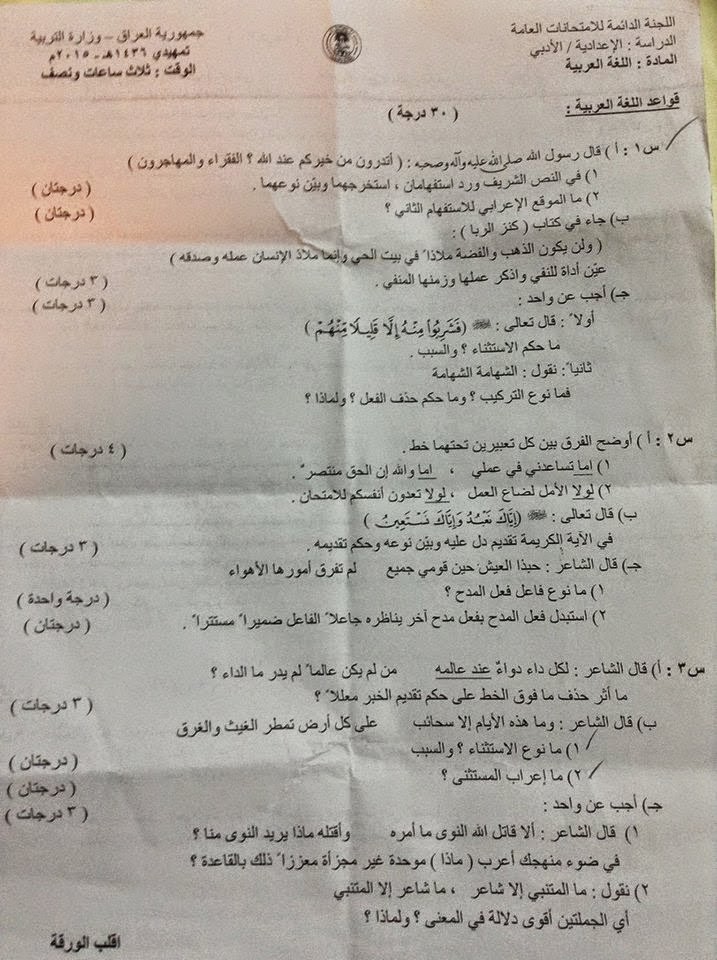 اللجنة الدائمة للامتحانات العامة
الدراسة : الإعدادية / الأدبي
المادة : اللغة العربية
جمهورية العراق – وزارة التربية
تمهيدي ١٤٣٦هـ - ٢٠١٥م
الوقت : ثلاث ساعات ونصف
قواعد اللغة العربية :
( ٣٠ درجة )
س١ : أ ) قال رسول الله صلى الله عليه وآله وصحبه : ( أتدرون من خيركم عند الله ؟ الفقراء والمهاجرون )
١) في النص الشريف ورد استفهامان ، استخرجهما وبيّن نوعهما . ( درجتان )
٢) ما الموقع الإعرابي للاستفهام الثاني ؟ ( درجتان )
ب) جاء في كتاب ( كنز الربا ) :
( ولن يكون الذهب والفضة ملاذاً في بيت الحي وإنما ملاذ الإنسان عمله وصدقه )
عيّن أداة للنفي واذكر عملها وزمنها المنفي . ( ٣ درجات )
جـ) أجب عن واحد : ( ٣ درجات )
أولاً : قال تعالى : ﷻ (فَشَرِبُوا۟ مِنْهُ إِلَّا قَلِيلًا مِنْهُمْ )
ما حكم الاستثناء ؟ والسبب .
ثانياً : نقول : الشهامة الشهامة
فما نوع التركيب ؟ وما حكم حذف الفعل ؟ ولماذا ؟
س٢ : أ ) أوضح الفرق بين كل تعبيرين تحتهما خط . ( ٤ درجات )
١) إما تساعدني في عملي ، اما والله إن الحق منتصرٌ .
٢) لولا الأمل لضاع العمل ، لولا تعدون أنفسكم للامتحان .
ب) قال تعالى : ﷻ (إِيَّاكَ نَعْبُدُ وَإِيَّاكَ نَسْتَعِينُ )
في الآية الكريمة تقديم دل عليه وبيّن نوعه وحكم تقديمه . ( ٣ درجات )
جـ) قال الشاعر : حبذا العيش حين قومي جميع لم تفرق أمورها الأهواء
١) ما نوع فاعل فعل المدح ؟ ( درجة واحدة )
٢) استبدل فعل المدح بفعل مدح آخر يناظره جاعلاً الفاعل ضميراً مستتراً . ( درجتان )
س٣ : أ) قال الشاعر : لكل داء دواءٌ عند عالمه من لم يكن عالماً لم يدر ما الداء ؟
ما أثر حذف ما فوق الخط على حكم تقديم الخبر معللاً ؟ ( ٣ درجات )
ب) قال الشاعر : وما هذه الأيام إلا سحائب على كل أرض تمطر الغيث والغرق
١) ما نوع الاستثناء ؟ والسبب ( درجتان )
٢) ما إعراب المستثنى ؟ ( درجتان )
جـ) أجب عن واحد : ( ٣ درجات )
١) قال الشاعر : ألا قاتل الله النوى ما أمره وأقتله ماذا يريد النوى منا ؟
في ضوء منهجك أعرب ( ماذا ) موحدة غير مجزأة معززاً ذلك بالقاعدة ؟
٢) نقول : ما المتنبي إلا شاعر ، ما شاعر إلا المتنبي
أي الجملتين أقوى دلالة في المعنى ؟ ولماذا ؟
اقلب الورقة